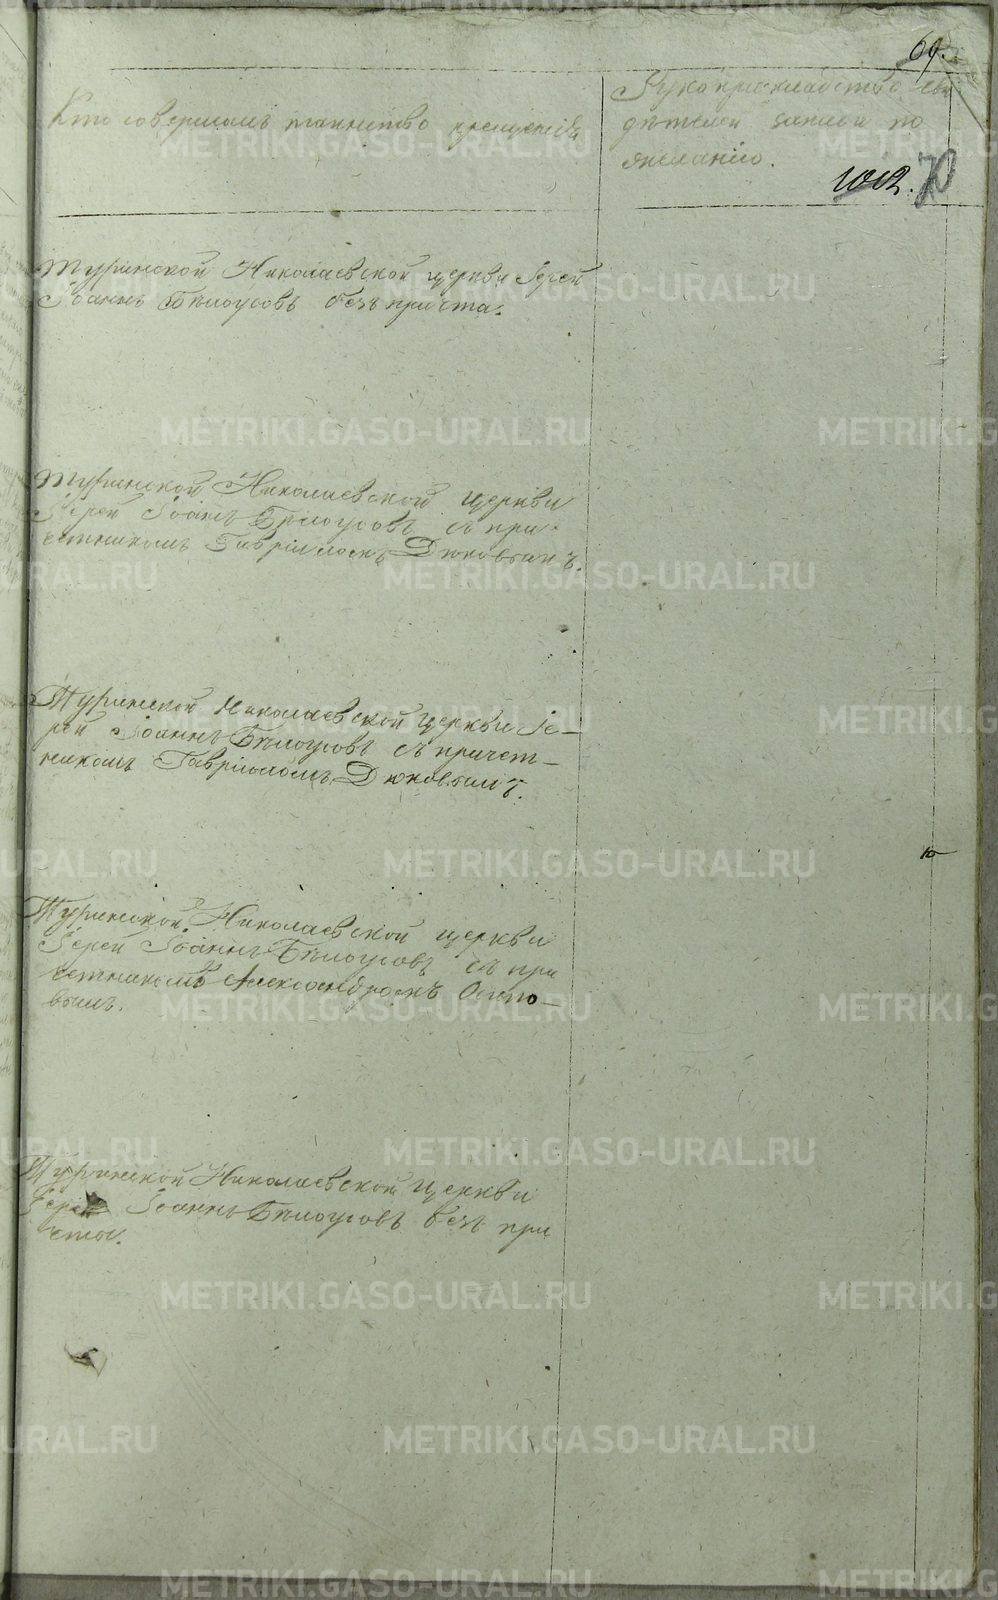 69.
Кто совершалъ таинство крещенія
Рукоприкладство сви
дѣтелей записи по
желанію.
1012. 70
Туринской Николаевской церкви Іерей
Іоаннъ Бѣлоусовъ безъ причта.
Туринской Николаевской церкви
Іерей Іоаннъ Бѣлоусовъ съ при-
четникомъ Гавріиломъ Дюковымъ.
Туринской Николаевской церкви Іе-
рей Іоаннъ Бѣлоусовъ съ причет-
никомъ Гавріиломъ Дюковымъ.
Туринской Николаевской церкви
Іерей Іоаннъ Бѣлоусовъ съ при
четникомъ Александромъ Осипо-
вымъ.
Туринской Николаевской церкви
Іерей Іоаннъ Бѣлоусовъ безъ при
чта.
METRIKI.GASO-URAL.RU